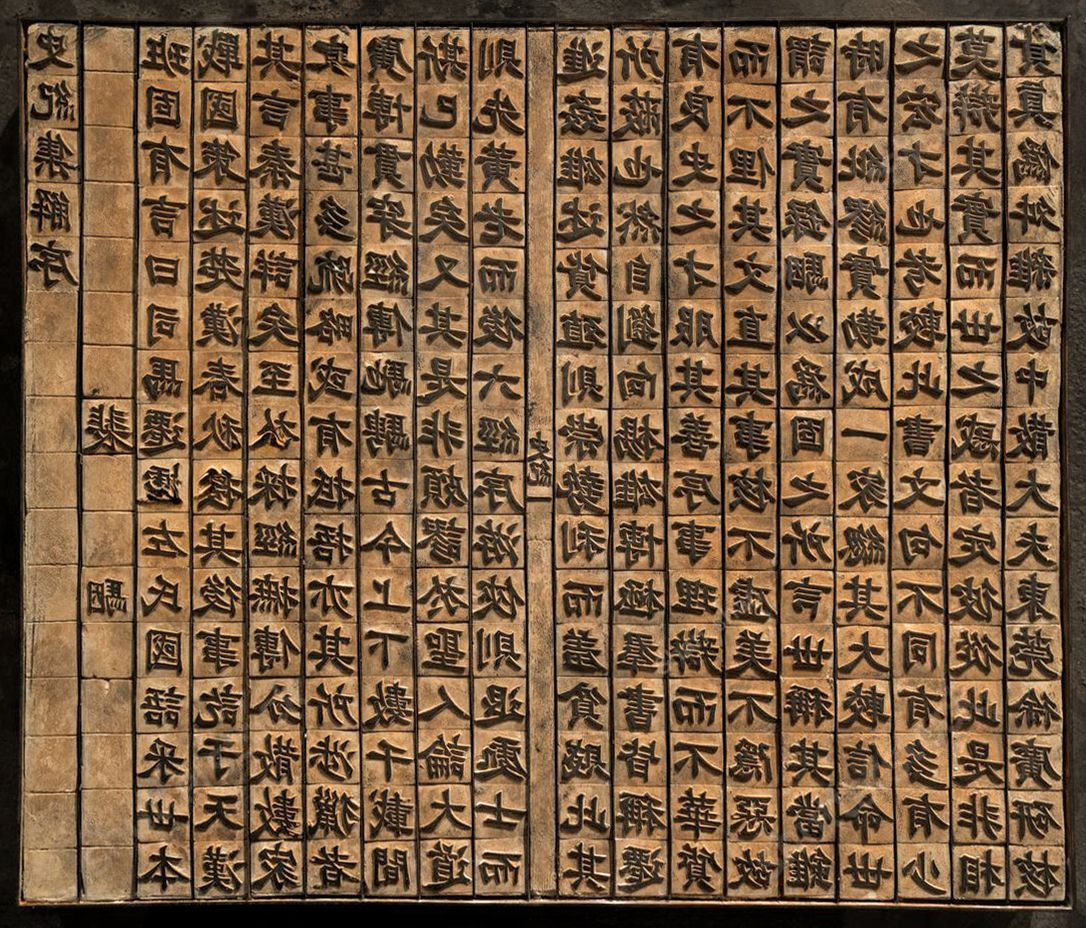 史紀集解序
裴 駰
班固有言曰司馬遷據左氏國語采世本
戰國策述楚漢春秋接其後事訖于天漢
其言秦漢詳矣至於採經摭傳分散數家
事甚多䟽略或有抵捂亦其所涉獵者
廣博貫穿經傳馳騁古今上下數千載間
斯已勤矣又其是非頗謬於聖人論大道
則先黃老而後六經序游俠則退處士而
史紀一
進姦雄述貨殖則崇勢利而羞貧賤此其
所蔽也然自劉向楊雄博極羣書皆稱遷
有良史之才服其善序事理辯而不華質
而不俚其文直其事核不虛美不隱惡故
謂之實錄駰以為固之所言世稱其當雖
時有紕繆實勒成一家總其大較信命世
之宏才也考較此書文句不同有多有少
莫辯其實而世之惑者定彼從此是非相
貿真偽舛雜故中散大夫東莞徐廣研核